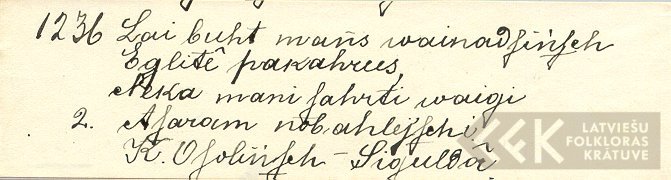 1236 Lai buht mans wainadsinsch
Eglitê pakahrees,
Neka mani sahrti waigi
2. Asaram nobahlejschi.
K. Osolinsch – Siguldâ
LATVIEŠU
FOLKLORAS
KRĀTUVE